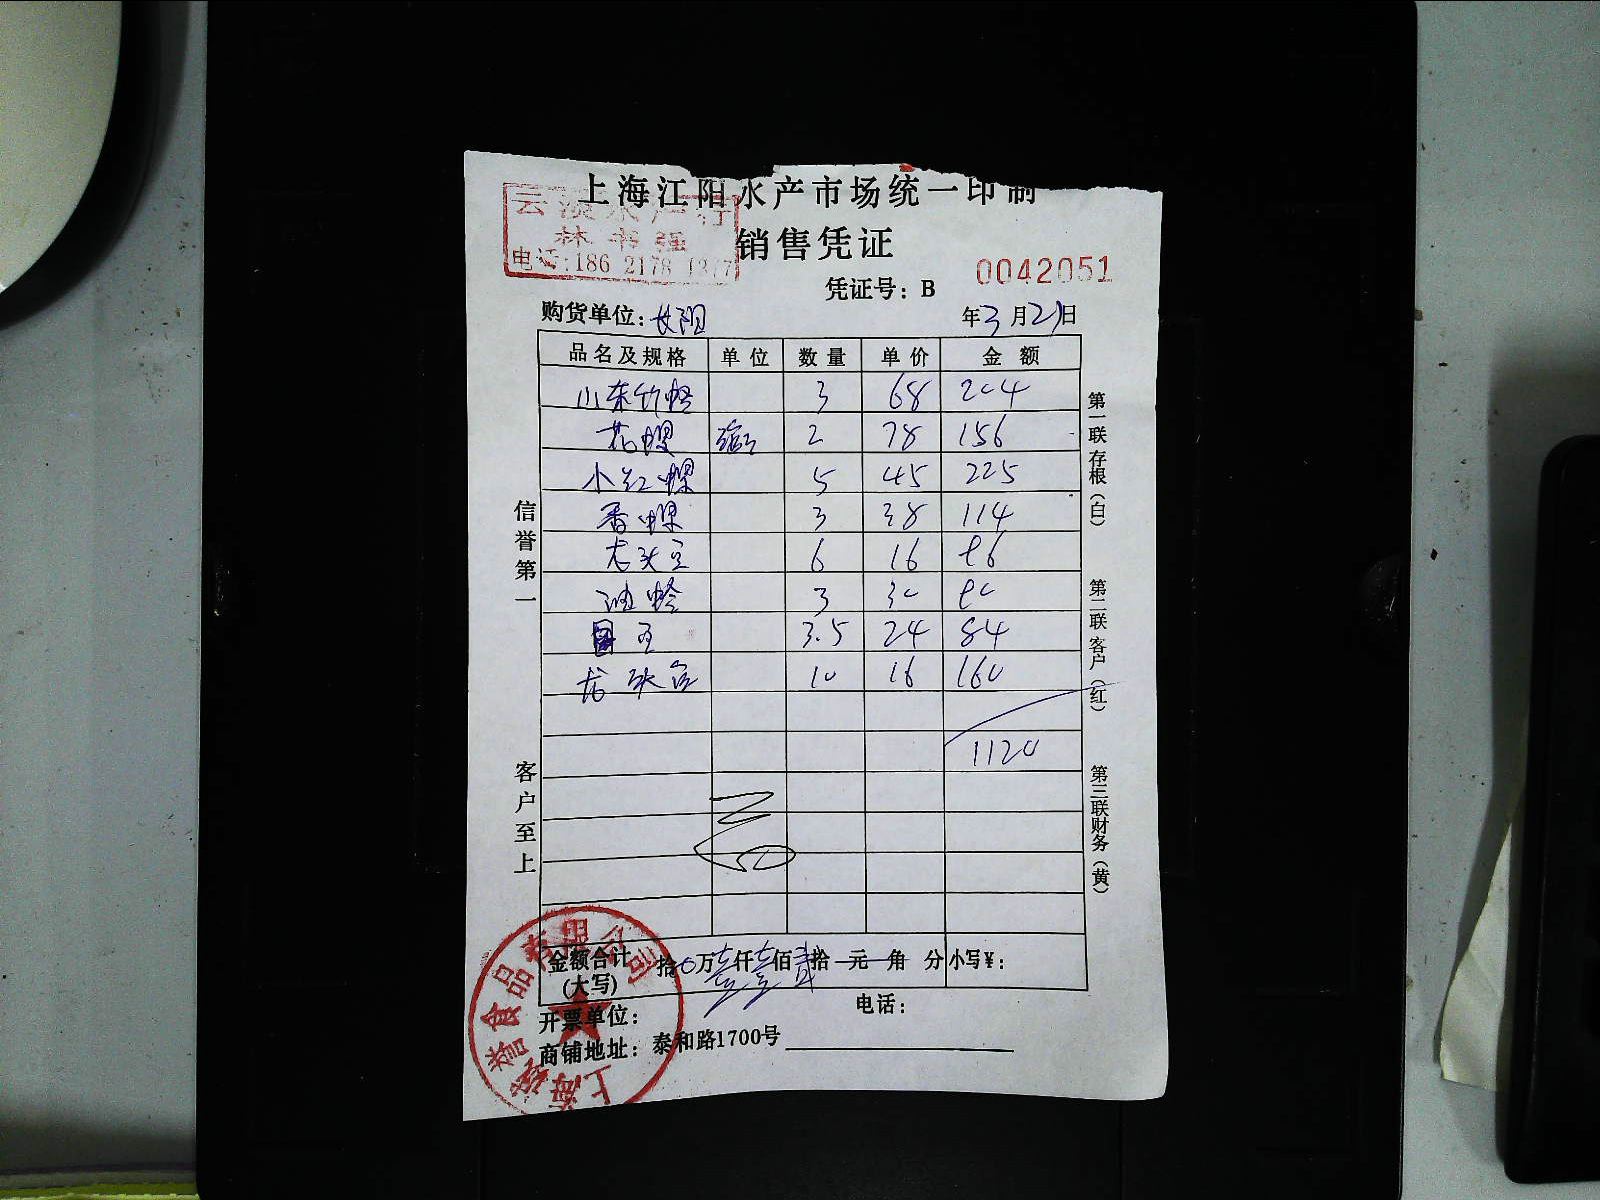 上海江阳水产市场统一印制
销售凭证
林书强
电话:186 2178
凭证号：B 0042051
购货单位：长阳
年3月21日
品名及规格 单位 数量 单价 金额
山东竹蛏 3 68 204
花螺 2 78 156
小红螺 5 45 225
香螺 3 38 114
老头立 6 16 96
油蛤 3 30 90
3.5 24 84
10 16 160
1120
信誉第一
客户至上
第一联存根（白）
第二联客户（红）
第三联财务（黄）
金额合计(大写) 拾0万壹仟壹佰贰拾元角分 小写¥：
开票单位：
电话：
商铺地址：泰和路1700号
誉食品有限公司
上海